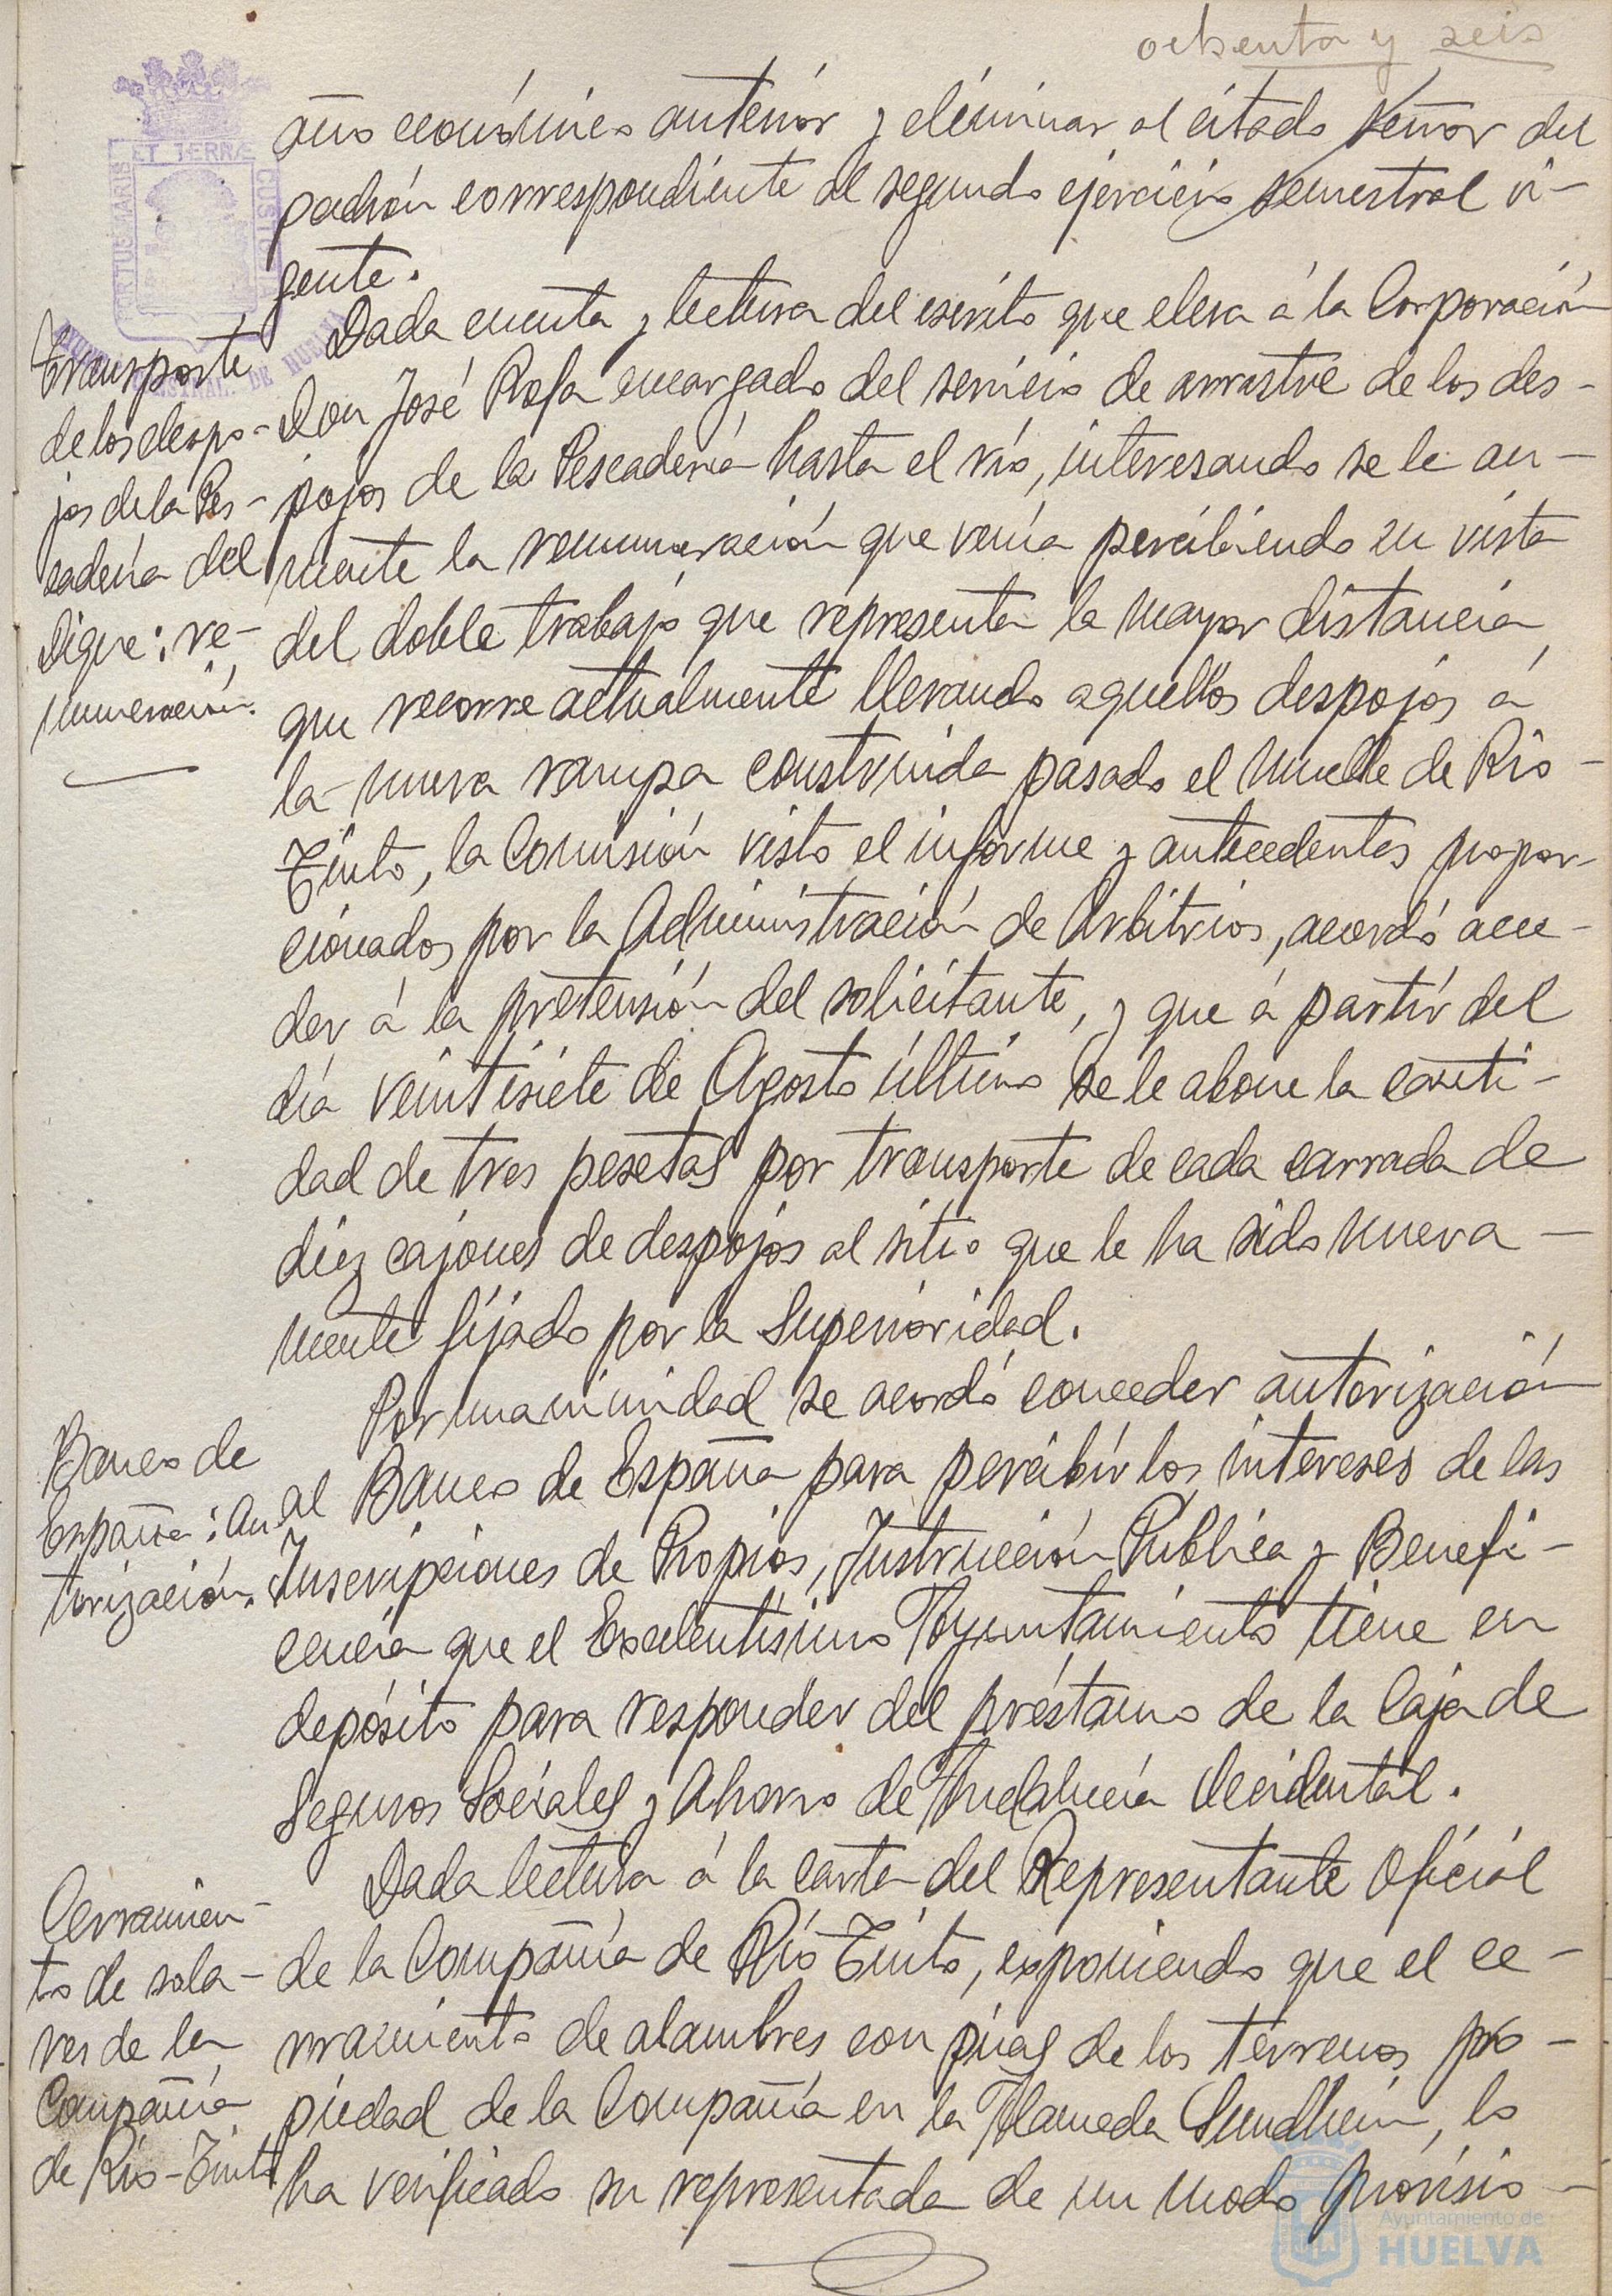 ochenta y seis
año económico anterior y eliminar al citado Señor del
padrón correspondiente al segundo ejercicio semestral vi-
gente.
Transporte
de los despo-
jos de la Pes-
cadería del
Dique: re-
muneración.
Dada cuenta y lectura del escrito que eleva á la Corporación
Don José Rofa encargado del servicio de arrastre de los des-
pojos de la Pescadería hasta el río, interesando se le au-
mente la remuneración que venía percibiendo en vista
del doble trabajo que representa la mayor distancia
que recorre actualmente llevando aquellos despojos á
la nueva rampa construida pasado el Muelle de Rio-
Tinto, la Comisión visto el informe y antecedentes propor-
cionados por la Administración de Arbitrios, acordó acce-
der á la pretensión del solicitante, y que á partir del
día veintisiete de Agosto último se le abone la canti-
dad de tres pesetas por transporte de cada carrada de
diez cajones de despojos al sitio que le ha sido nueva-
mente fijado por la Superioridad.
Banco de
España: Au
torización.
Por unanimidad se acordó conceder autorización
al Banco de España para percibir los intereses de las
Inscripciones de Propios, Instrucción Pública y Benefi-
cencia que el Excelentísimo Ayuntamiento tiene en
depósito para responder del préstamo de la Caja de
Seguros Sociales y Ahorro de Andalucía Occidental.
Cerramien-
to de sola-
res de la
Compañía
de Rio-Tinto
Dada lectura á la carta del Representante Oficial
de la Compañía de Río Tinto, exponiendo que el ce-
rramiento de alambres con púas de los terrenos pro-
piedad de la Compañía en la Alameda Sundheim, lo
ha verificado su representada de un modo provisio-
ET TERRÆ
PORTUS MARIS
CUSTODIA
Ayuntamiento de
HUELVA